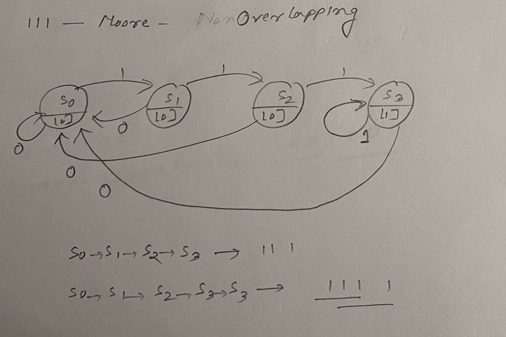 111 — Moore - Non Overlapping
1 1 1
S0 S1 S2 S3
[0] [0] [0] [1]
0 0 1
0
0
S0→S1→S2→S3 → 111
S0→S1→S2→S3→S3 → 1111